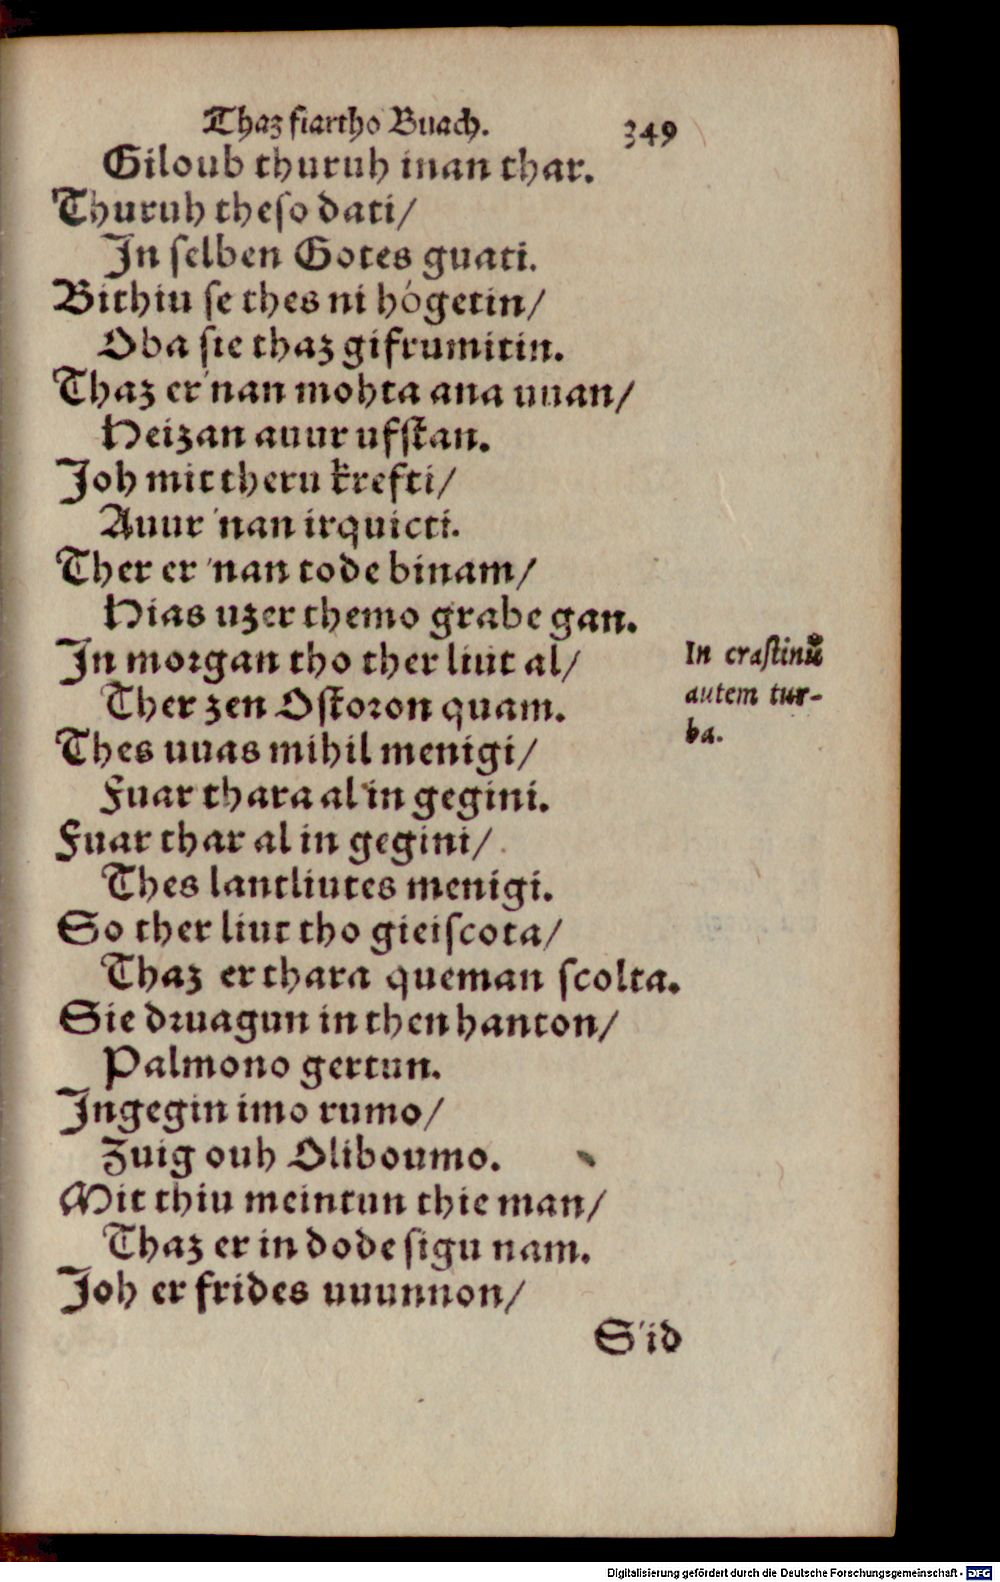 Thaz fiartho Buach. 349
Giloub thuruh inan thar.
Thuruh theso dati/
In selben Gotes guati.
Bithiu se thes ni hógetin/
Oba sie thaz gifrumitin.
Thaz er 'nan mohta ana uuan/
Heizan auur ufstan.
Joh mit theru krefti/
Auur 'nan irquicti.
Ther er 'nan tode binam/
Hias uzer themo grabe gan.
In morgan tho ther liut al/
Ther zen Ostoron quam.
In crastinũ
autem tur-
ba.
Thes uuas mihil menigi/
Fuar thara al in gegini.
Fuar thar al in gegini/
Thes lantliutes menigi.
So ther liut tho gieiscota/
Thaz er thara queman scolta.
Sie druagun in then hanton/
Palmono gertun.
Ingegin imo rumo/
Zuig ouh Oliboumo.
Mit thiu meintun thie man/
Thaz er in dode sigu nam.
Joh er frides uuunnon/
S'id
Digitalisierung gefördert durch die Deutsche Forschungsgemeinschaft - DFG